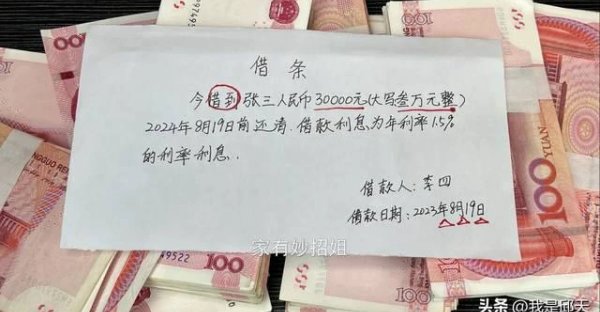 借条
今借到张三人民币30000元(大写叁万元整)
2024年8月19日前还清.借款利息为年利率15%
的利率利息.
借款人:李四
借款日期:2023年8月19日
家有妙招姐
100
100
100
YUAN
49522
头条@我是邱天